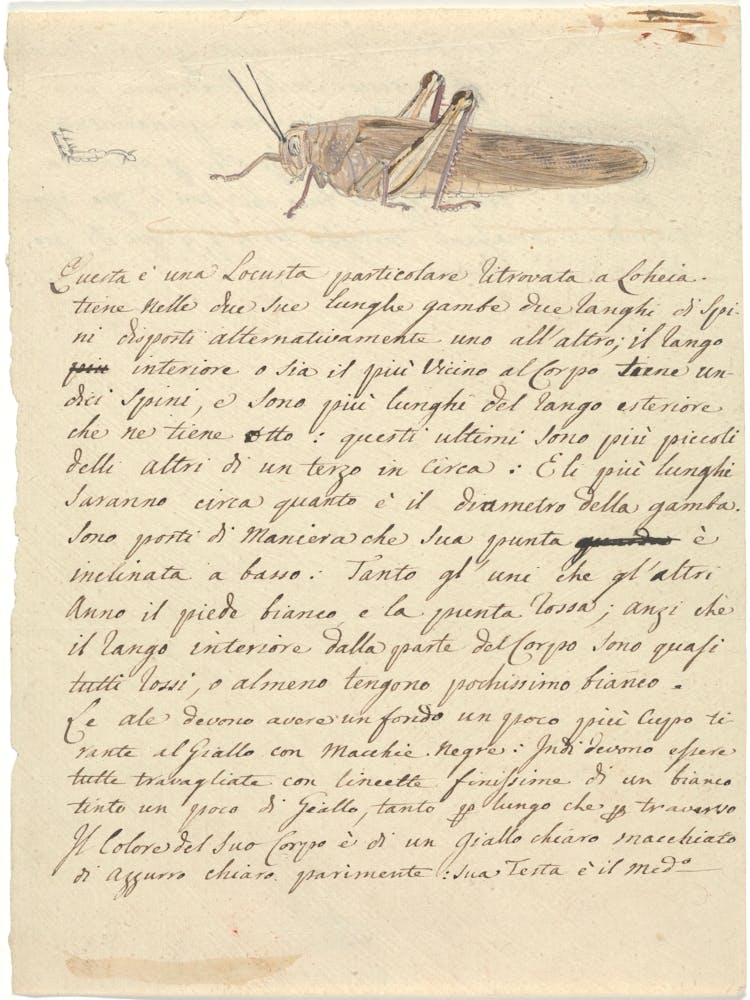 Questa è una Locusta particolare ritrovata a Loheia.
tiene nelle due sue lunghe gambe due ranghi di spi-
ni disposti alternativamente uno all'altro; il rango
più interiore o sia il più vicino al Corpo tiene un-
dici spini, e sono più lunghi del rango esteriore
che ne tiene otto: questi ultimi sono più piccoli
delli altri di un terzo in circa: E li più lunghi
saranno circa quanto è il diametro della gamba.
sono posti di maniera che sua punta è
inclinata a basso: Tanto gl'uni che gl'altri
Anno il piede bianco e la punta rossa; anzi chè
il rango interiore dalla parte del Corpo sono quasi
tutti rossi, o almeno tengono pochissimo bianco.
Le ale devono avere un fondo un poco più cupo ti-
rante al Giallo con Macchie Negre: Indi devono essere
tutte travagliate con lineette finissime di un bianco
tinto un poco di Giallo, tanto p lungo che p traverso
Il Colore del suo Corpo è di un giallo chiaro macchiato
di azzurro chiaro parimente: sua Testa è il medo